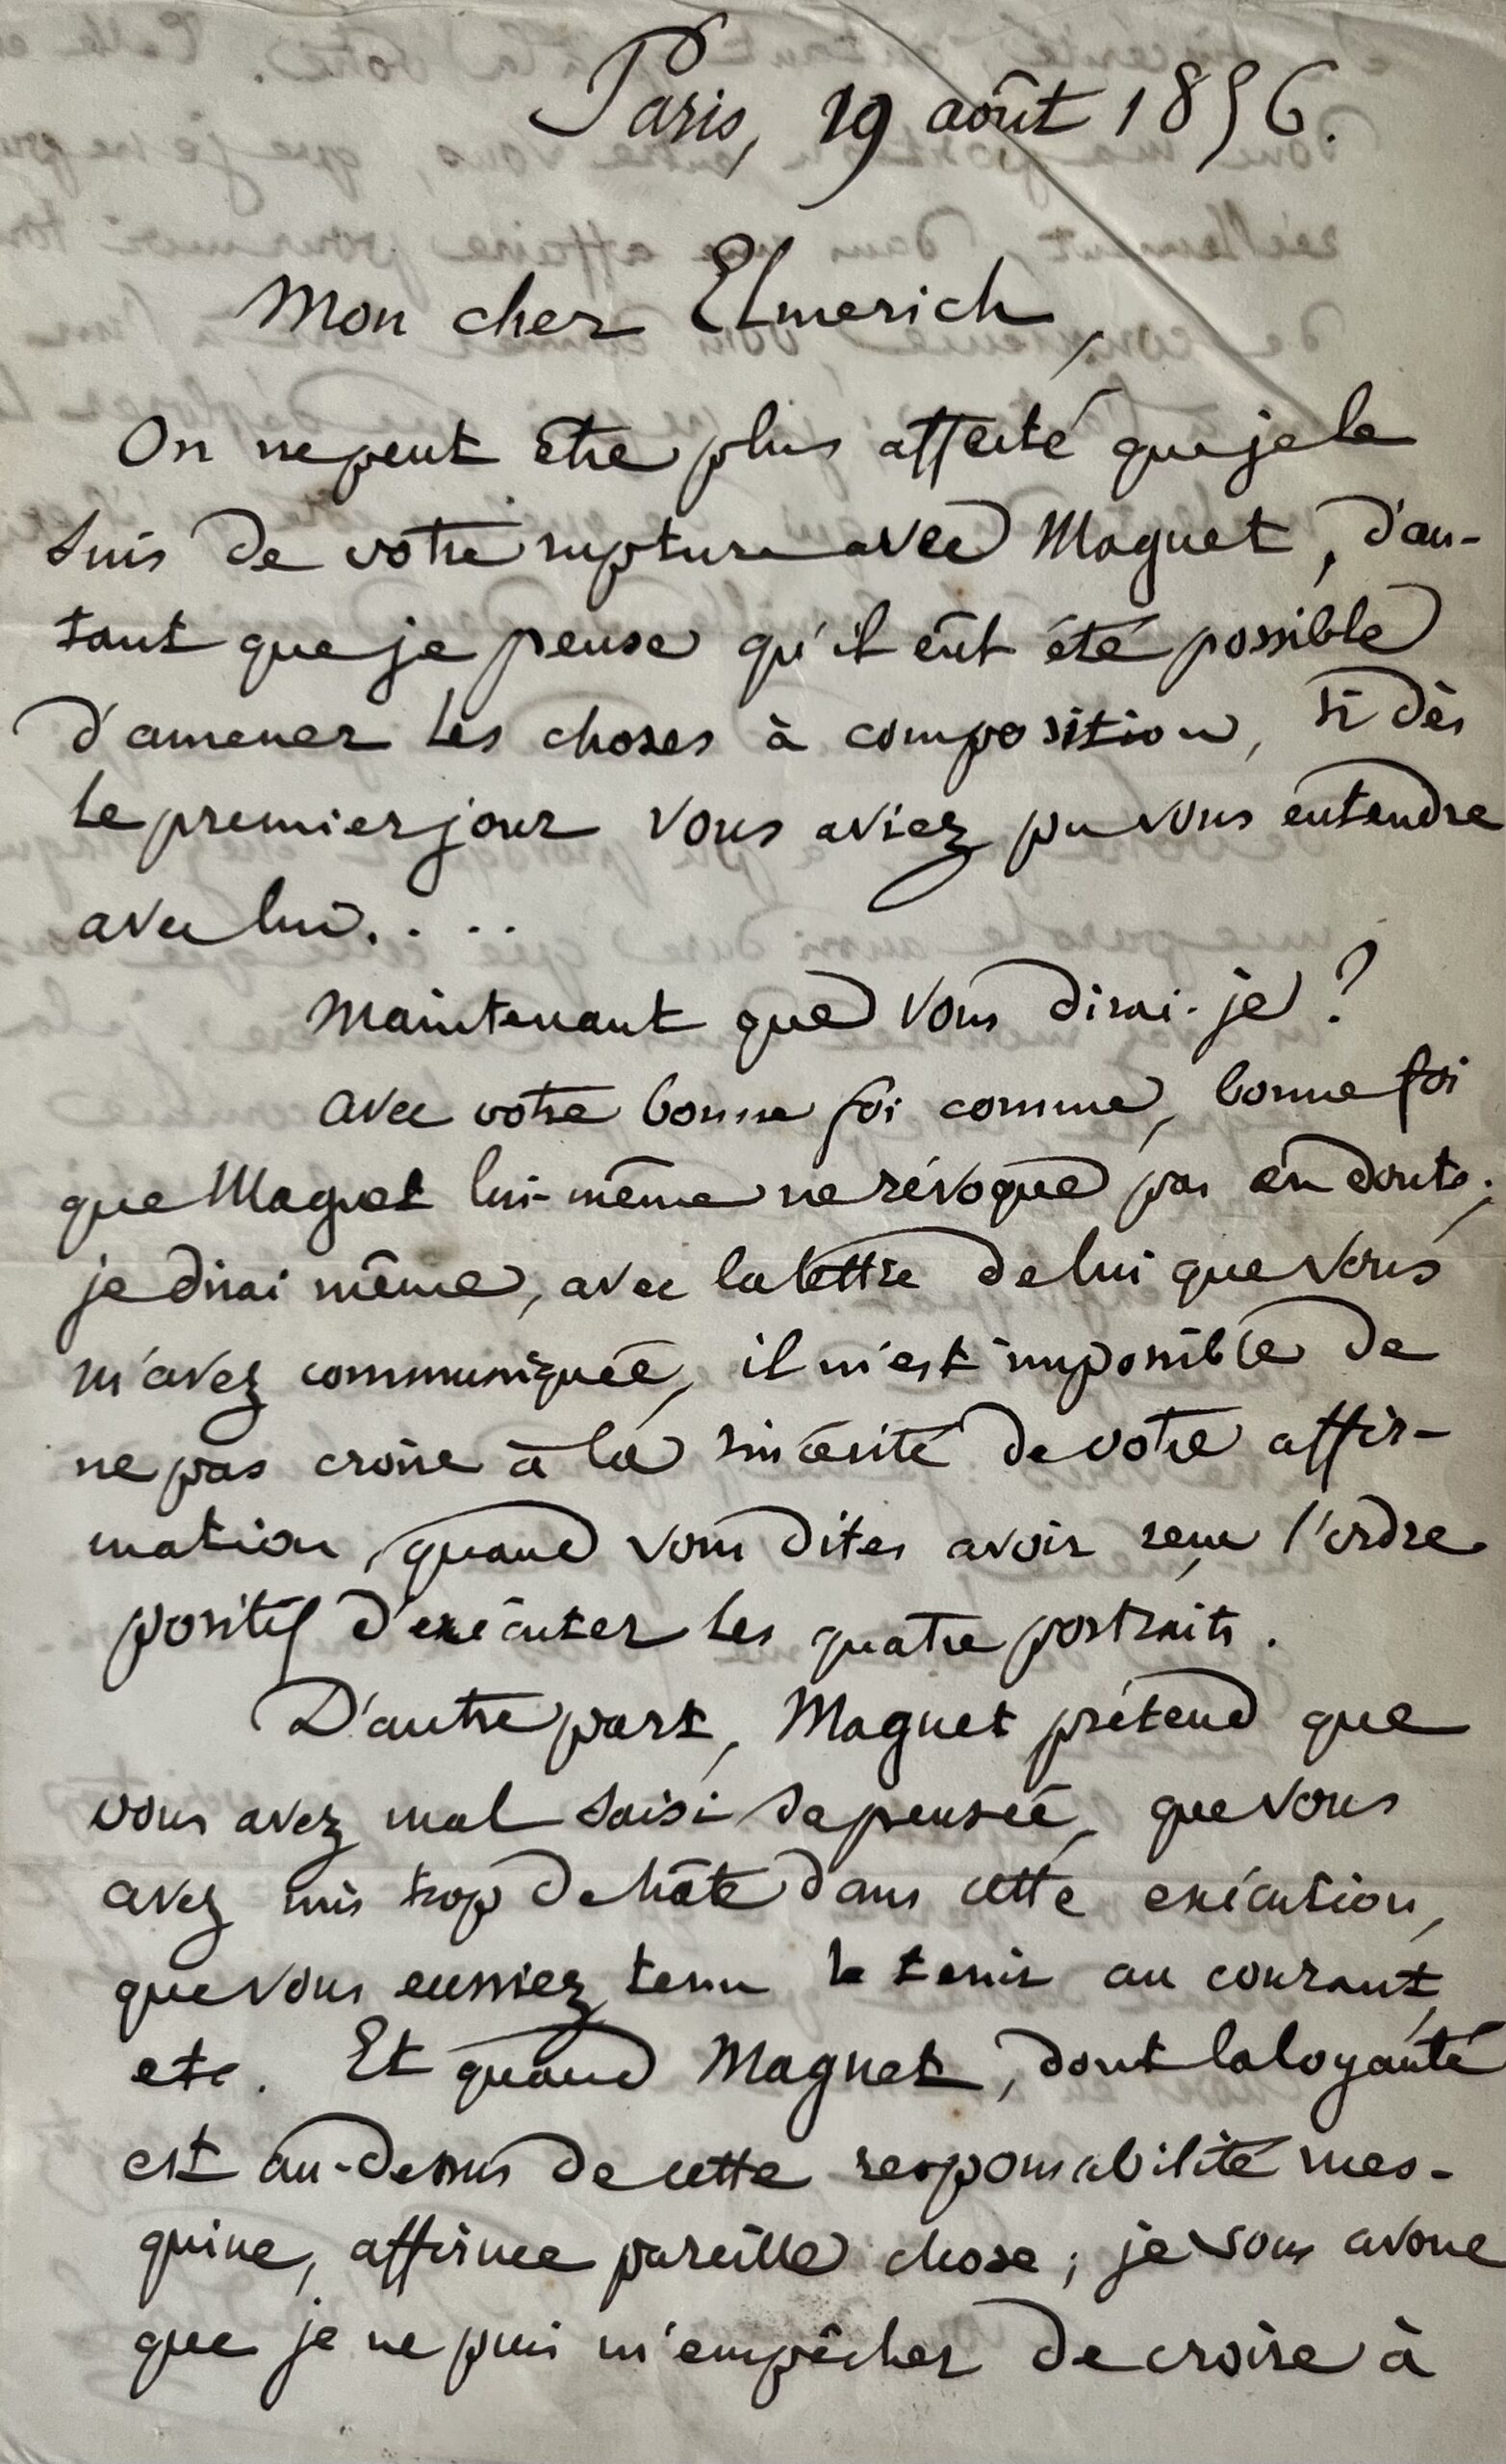 Paris, 19 août 1856.
Mon cher Elmerich,
On ne peut être plus affecté que je le
suis de votre rupture avec Maguet, d'au-
tant que je pense qu'il eût été possible
d'amener les choses à composition, si dès
le premier jour vous aviez pu vous entendre
avec lui....
Maintenant que vous dirai-je ?
avec votre bonne foi comme, bonne foi
que Maguet lui-même ne révoque pas en doute;
je dirai même, avec la lettre de lui que vous
m'avez communiquée, il m'est impossible de
ne pas croire à la sincérité de votre affir-
mation, quand vous dites avoir reçu l'ordre
positif d'exécuter les quatre portraits.
D'autre part, Maguet prétend que
vous avez mal saisi sa pensée, que vous
avez mis trop de hâte dans cette exécution,
que vous eussiez tenu le tenir au courant,
etc. Et quand Maguet, dont la loyauté
est au-dessus de cette responsabilité mes-
quine, affirme pareille chose; je vous avoue
que je ne puis m'empêcher de croire à